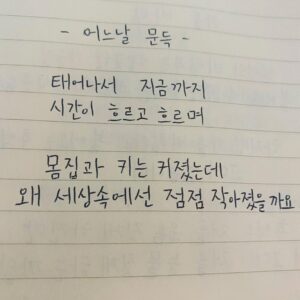 - 어느날 문득 -
태어나서 지금까지
시간이 흐르고 흐르며
몸집과 키는 커졌는데
왜 세상속에선 점점 작아졌을까요